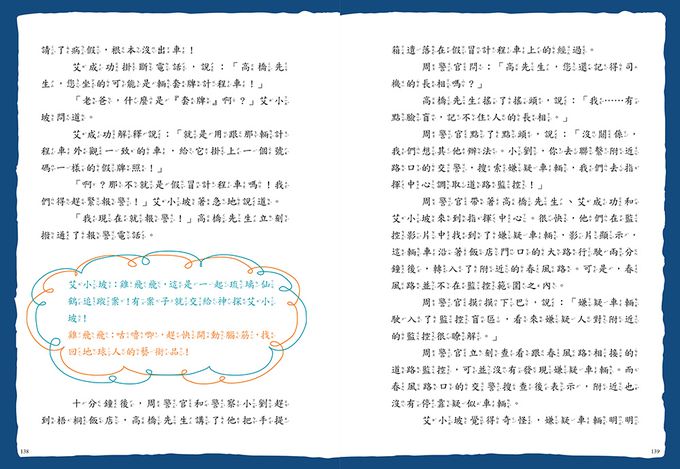 請了病假，根本沒出車！
艾成功掛斷電話，說：「高橋先
生，您坐的可能是輛套牌計程車！」
「老爸，什麼是『套牌』啊？」艾小
坡問道。
艾成功解釋說：「就是用跟那輛計
程車外觀一致的車，給它掛上一個號
碼一樣的假牌照！」
「啊？那不就是假冒計程車嗎！我
們得趕緊報警！」艾小坡著急地說道。
「我現在就報警！」高橋先生立刻
撥通了報警電話。
艾小坡：雞飛飛，這是一起琉璃仙
鶴追蹤案！有案子就交給神探艾小
坡！
雞飛飛：咕嘰唧，趕快開動腦筋，找
回地球人的藝術品！
十分鐘後，周警官和警察小劉趕
到梧桐飯店，高橋先生講了他把手提
138
箱遺落在假冒計程車上的經過。
周警官問：「高橋先生，您還記得司
機的長相嗎？」
高橋先生搖了搖頭，說：「我……有
點臉盲，記不住人的長相。」
周警官點了點頭，說：「沒關係，
我們想其他辦法。小劉，你去聯繫附近
路口的交警，搜索嫌疑車輛，我們去指
揮中心調取道路監控！」
周警官帶著高橋先生、艾成功和
艾小坡來到指揮中心。很快，他們在監
控影片中找到了嫌疑車輛，影片顯示，
這輛車沿著飯店門口的大路行駛兩分
鐘後，轉入了附近的春風路。可是，春
風路並不在監控範圍之內。
周警官摸摸下巴，說：「嫌疑車輛
駛入了監控盲區，看來嫌疑人對附近
的監控很瞭解。」
周警官立刻查看跟春風路相接的
道路監控，可並沒有發現嫌疑車輛。而
春風路口的交警搜查後表示，附近也
沒有停靠疑似車輛。
艾小坡覺得奇怪，嫌疑車輛明明
139